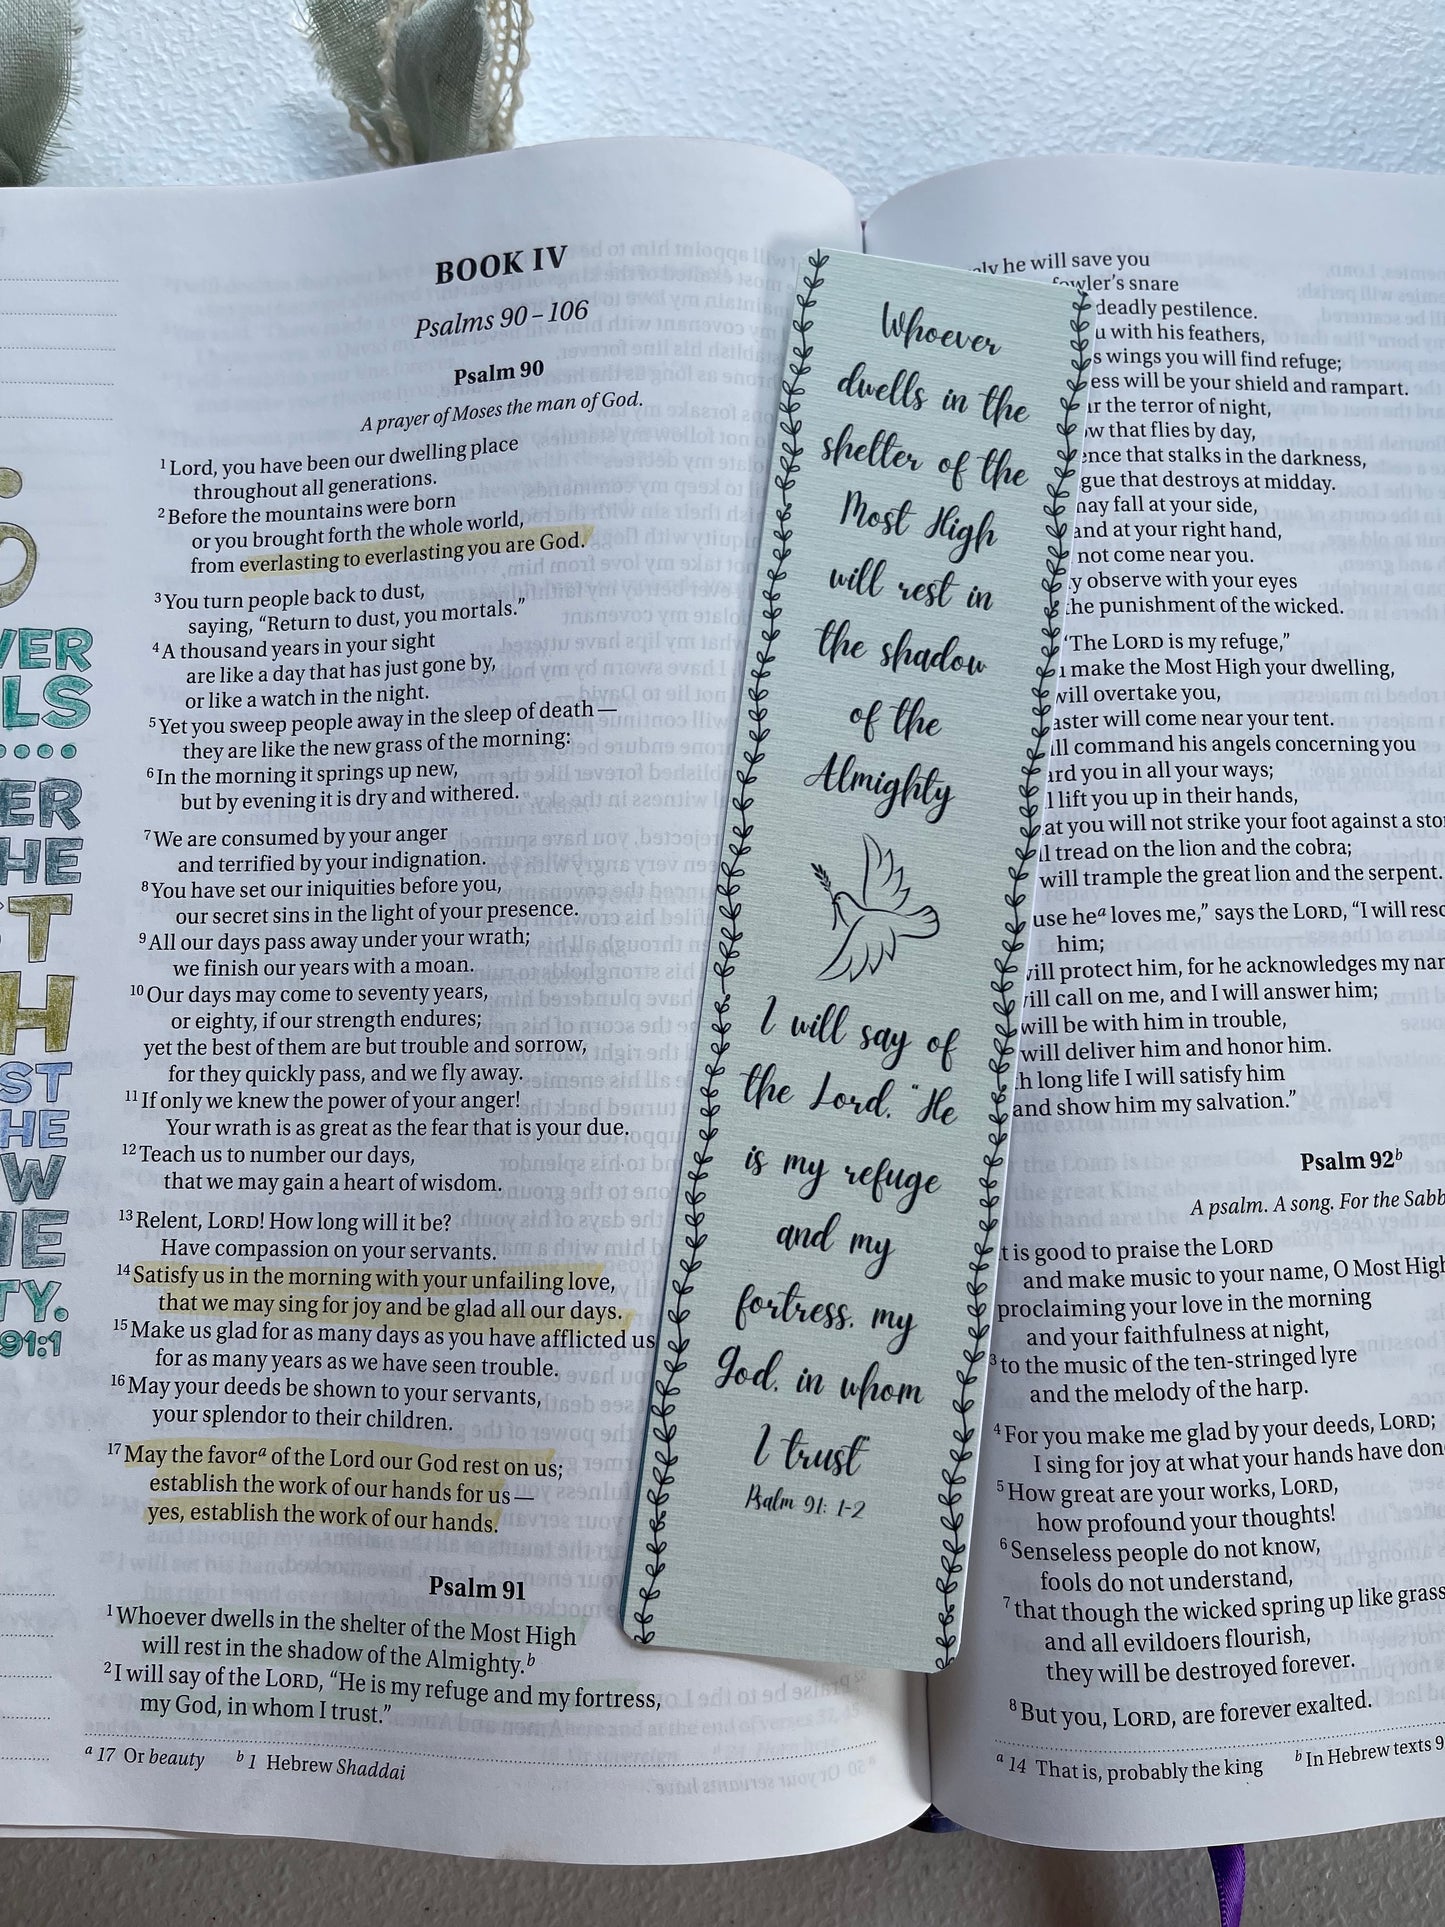 VER
LS
ER
HE
T
H
ST
HE
W
NE
TY.
91:1
BOOK IV
Psalms 90–106
Psalm 90
A prayer of Moses the man of God.
1 Lord, you have been our dwelling place
throughout all generations.
2 Before the mountains were born
or you brought forth the whole world,
from everlasting to everlasting you are God.
3 You turn people back to dust,
saying, “Return to dust, you mortals.”
4 A thousand years in your sight
are like a day that has just gone by,
or like a watch in the night.
5 Yet you sweep people away in the sleep of death—
they are like the new grass of the morning:
6 In the morning it springs up new,
but by evening it is dry and withered.
7 We are consumed by your anger
and terrified by your indignation.
8 You have set our iniquities before you,
our secret sins in the light of your presence.
9 All our days pass away under your wrath;
we finish our years with a moan.
10 Our days may come to seventy years,
or eighty, if our strength endures;
yet the best of them are but trouble and sorrow,
for they quickly pass, and we fly away.
11 If only we knew the power of your anger!
Your wrath is as great as the fear that is your due.
12 Teach us to number our days,
that we may gain a heart of wisdom.
13 Relent, LORD! How long will it be?
Have compassion on your servants.
14 Satisfy us in the morning with your unfailing love,
that we may sing for joy and be glad all our days.
15 Make us glad for as many days as you have afflicted us,
for as many years as we have seen trouble.
16 May your deeds be shown to your servants,
your splendor to their children.
17 May the favor a of the Lord our God rest on us;
establish the work of our hands for us—
yes, establish the work of our hands.
Psalm 91
1 Whoever dwells in the shelter of the Most High
will rest in the shadow of the Almighty. b
2 I will say of the LORD, “He is my refuge and my fortress,
my God, in whom I trust.”
a 17 Or beauty b 1 Hebrew Shaddai
Whoever
dwells in the
shelter of the
Most High
will rest in
the shadow
of the
Almighty
I will say of
the Lord, "He
is my refuge
and my
fortress, my
God, in whom
I trust"
Psalm 91: 1-2
he will save you
fowler’s snare
deadly pestilence.
with his feathers,
wings you will find refuge;
will be your shield and rampart.
the terror of night,
that flies by day,
that stalks in the darkness,
that destroys at midday.
may fall at your side,
and at your right hand,
not come near you.
observe with your eyes
the punishment of the wicked.
“The LORD is my refuge,”
make the Most High your dwelling,
will overtake you,
will come near your tent.
command his angels concerning you
you in all your ways;
lift you up in their hands,
you will not strike your foot against a
tread on the lion and the cobra;
will trample the great lion and the serpent.
he a loves me,” says the LORD, “I will
him;
will protect him, for he acknowledges my
will call on me, and I will answer him;
will be with him in trouble,
will deliver him and honor him.
long life I will satisfy him
and show him my salvation.”
Psalm 92 b
A psalm. A song. For the
is good to praise the LORD
and make music to your name, O Most High
proclaiming your love in the morning
and your faithfulness at night,
3 to the music of the ten-stringed lyre
and the melody of the harp.
4 For you make me glad by your deeds, LORD;
I sing for joy at what your hands have
5 How great are your works, LORD,
how profound your thoughts!
6 Senseless people do not know,
fools do not understand,
7 that though the wicked spring up like grass
and all evildoers flourish,
they will be destroyed forever.
8 But you, LORD, are forever exalted.
a 14 That is, probably the king b In Hebrew texts